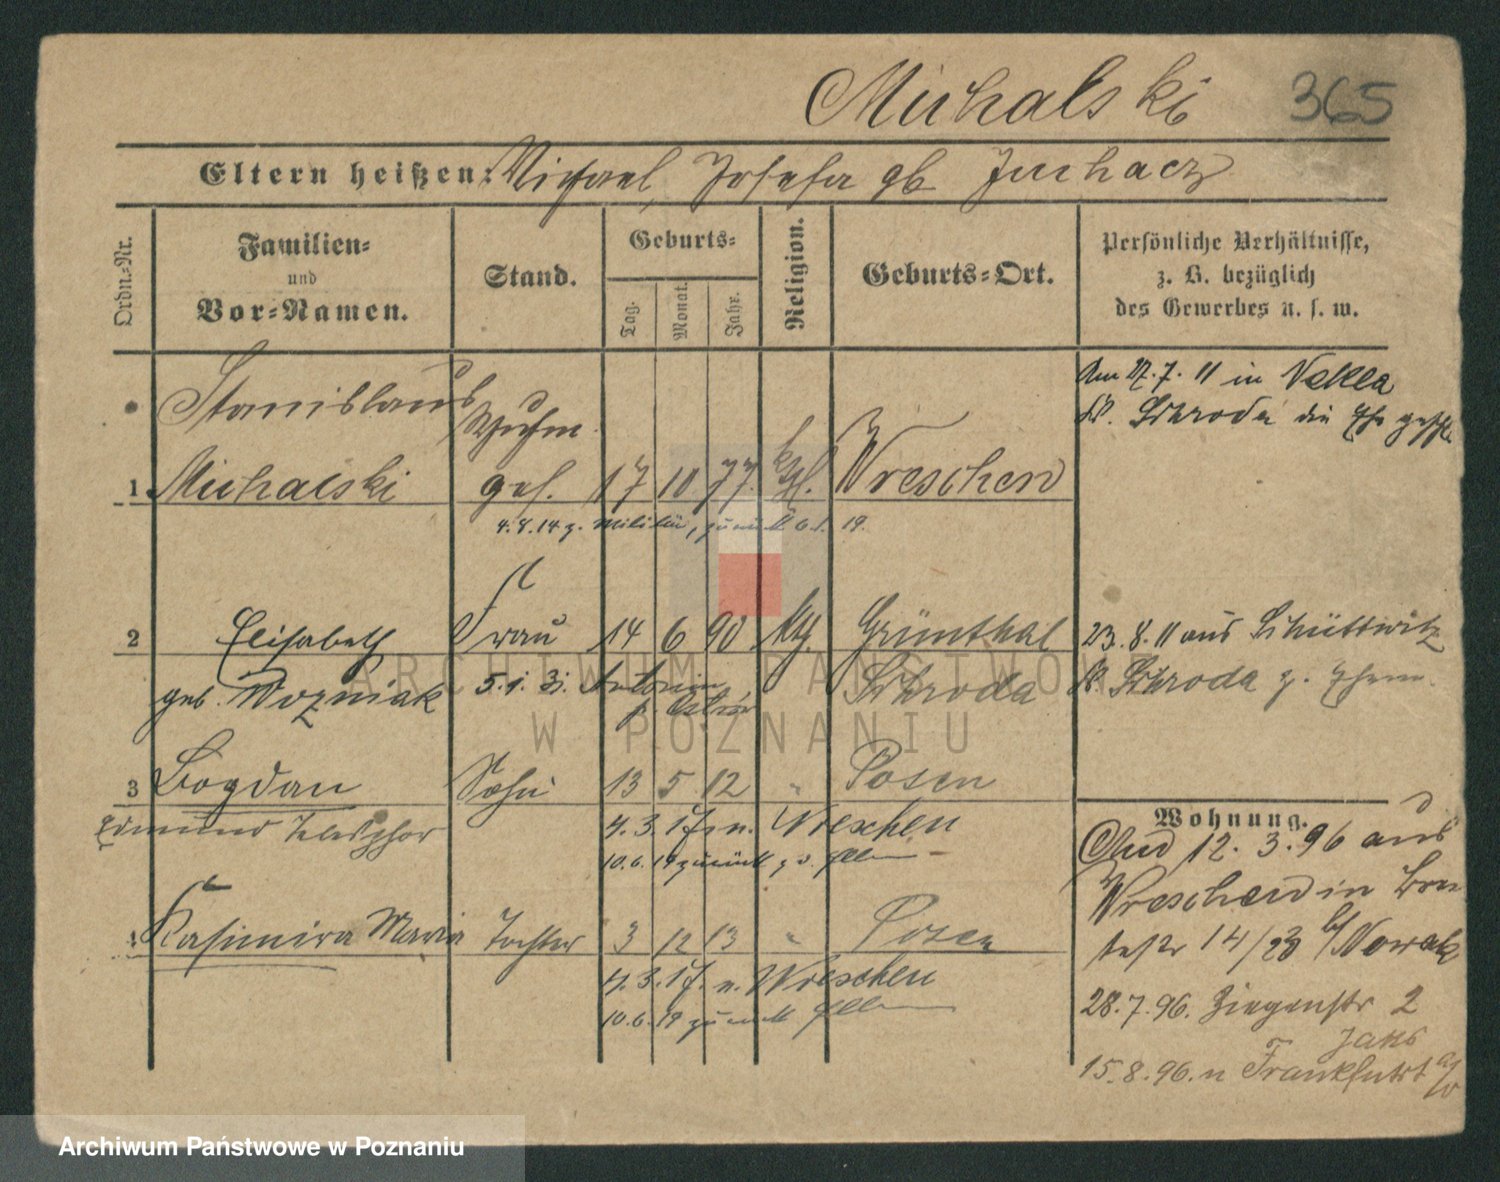 Michalski 365
Eltern heißen: Michael, Josefa gb Juchacz
Ordn.-Nr.
Familien-
und
Vor-Namen.
Stand.
Geburts-
Tag.
Monat.
Jahr.
Religion.
Geburts-Ort.
Persönliche Verhältnisse,
z. B. bezüglich
des Gewerbes u. s. w.
Stanislaus Schuhm.
1 Michalski ges. 17 10 77. kth. Wreschen
4.8.14 z. Militär, zurück 6.1.19.
Am 27.7.11 in Nekla
Kr. Schroda die Ehe geschl.
2 Elisabeth Frau 14 6 90 kth. Grünthal
geb. Wozniak 5.1.31. Antonin Schroda
p. Ostrów
23.8.11 aus Schüttwitz
Kr. Schroda z. Ehem.
3 Bogdan Sohn 13 5 12 " Posen
Edmund Telesphor 4.3.17 n. Wreschen
10.6.19 zurück z. d. Eltern
4 Kasimira Maria Tochter 3 12 13 " Posen
4.3.17. n. Wreschen
10.6.19 zurück Eltern
Wohnung.
12.3.96 aus
Wreschen in
14/23 b/ Nowak
28.7.96. Ziegenstr 2
15.8.96. n Frankfurt a/O
ARCHIWUM PAŃSTWOWE
W POZNANIU
Archiwum Państwowe w Poznaniu